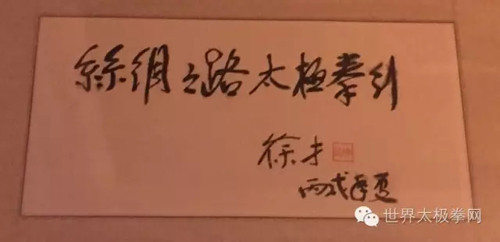 絲綢之路太極拳行
徐才
丙戌年夏
世界太极拳网